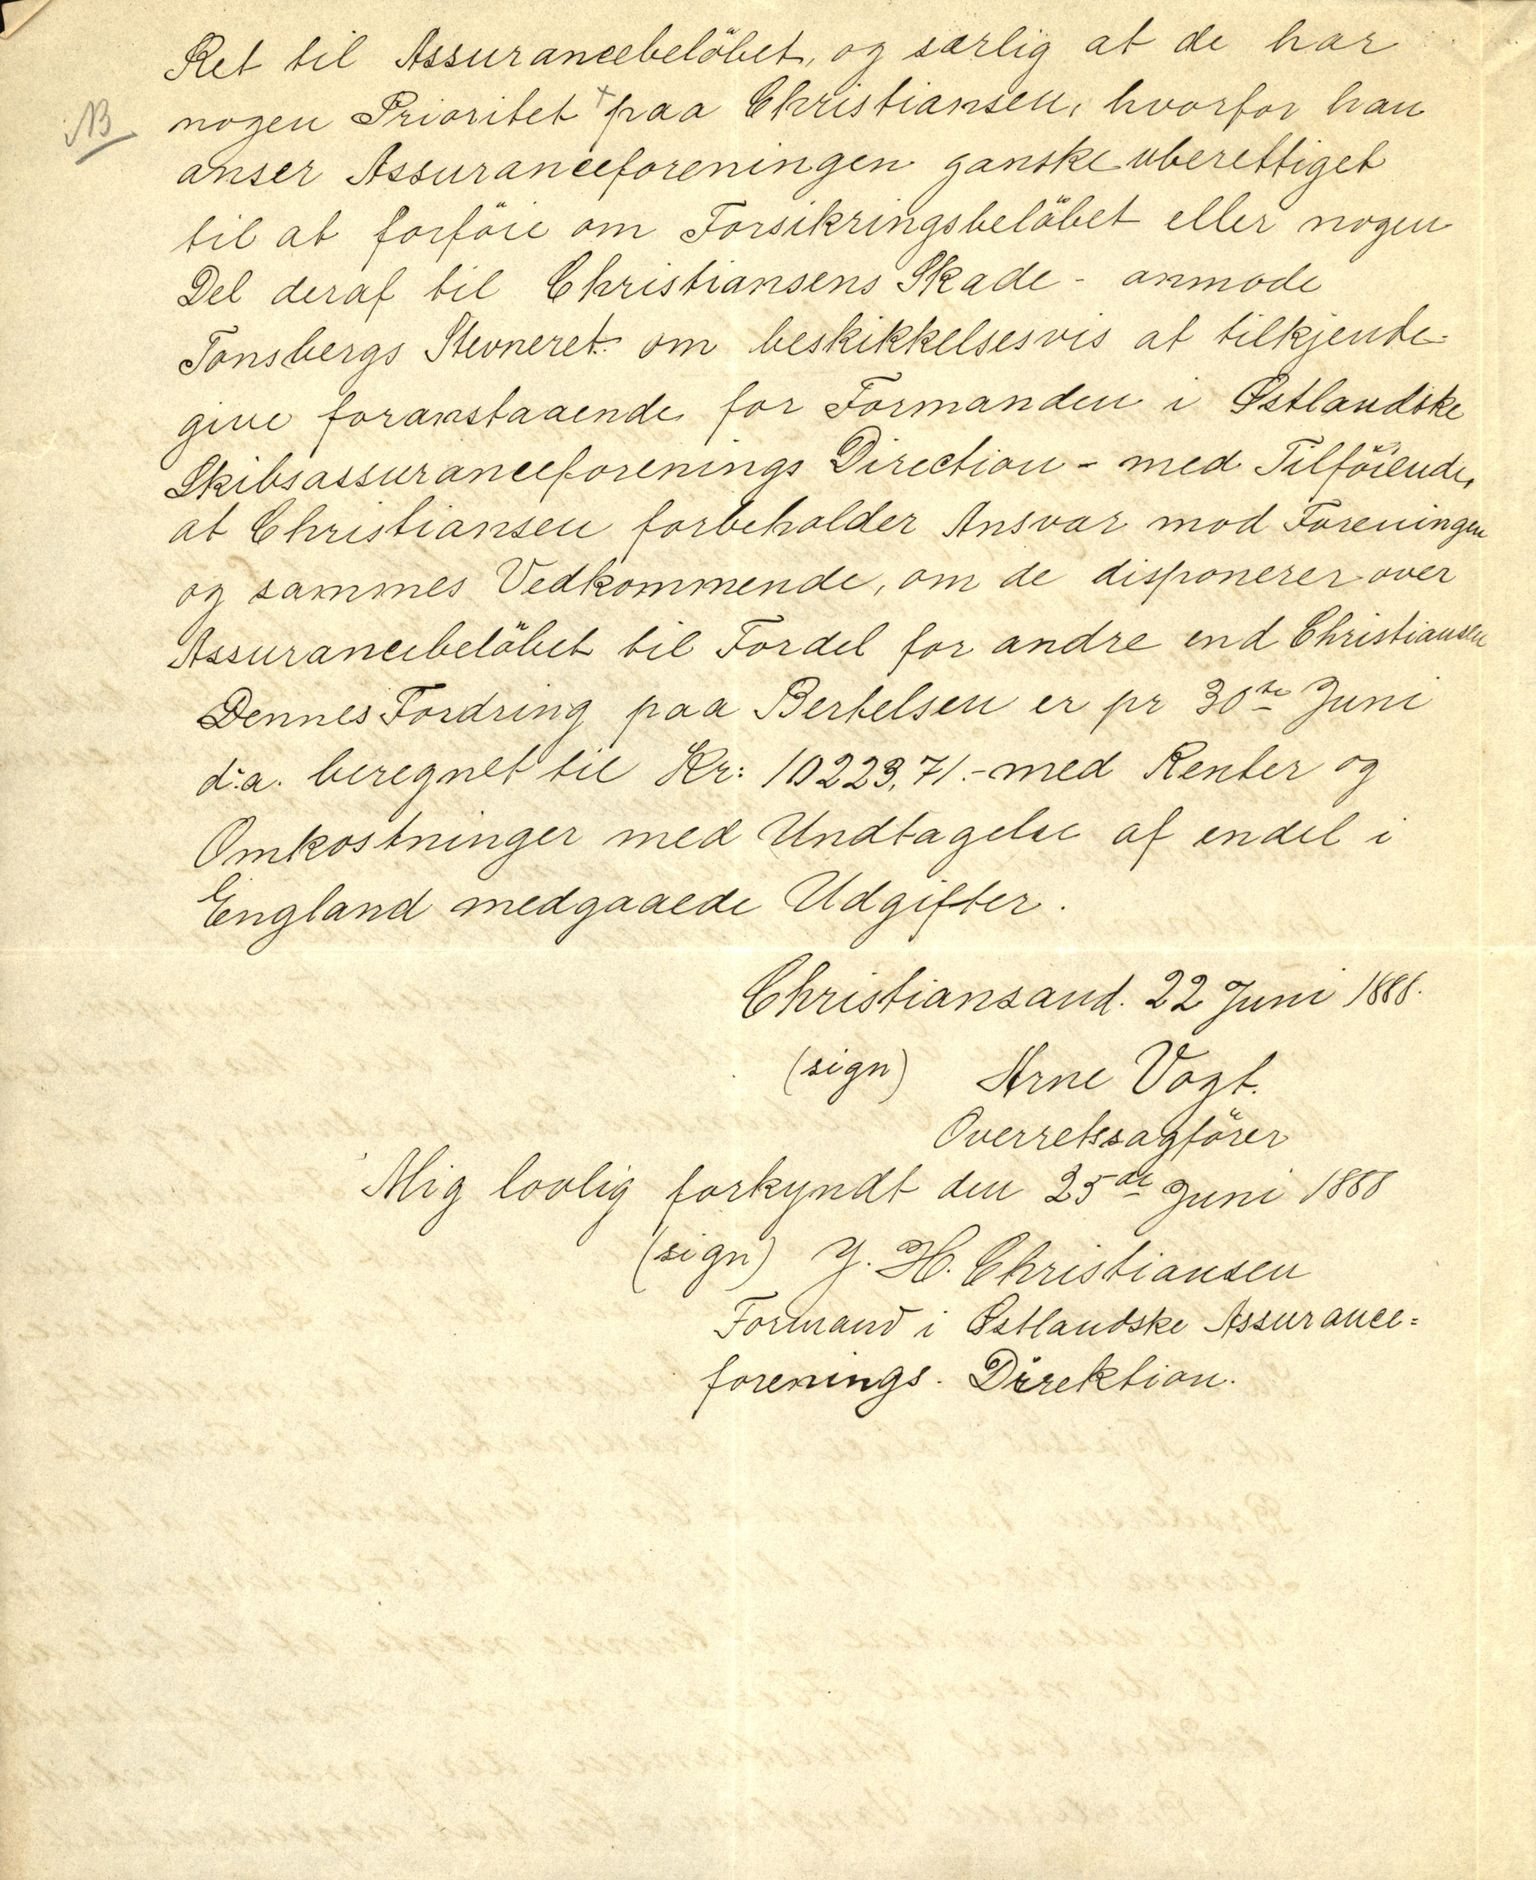 Ret til Assurancebelöbet, og særlig at de har
NB
nogen Prioritet + paa Christiansen, hvorfor han
anser Assuranceforeningen ganske uberettiget
til at forföie om Forsikringsbelöbet eller nogen
Del deraf til Christiansens Skade - anmode
Tønsbergs Stevneret om beskikkelsesvis at tilkjende-
give foranstaaende for Formanden i Østlandske
Skibsassuranceforenings Direction - med Tilföiende,
at Christiansen forbeholder Ansvar mod Foreningen
og sammes Vedkommende, om de disponerer over
Assurancebelöbet til Fordel for andre end Christiansen
Dennes Fordring paa Bertelsen er pr 30te Juni
d:a. beregnet til Kr: 10223,71.- med Renter og
Omkostninger med Undtagelse af endel i
England medgaaede Udgifter.
Christiansand. 22 Juni 1888.
(sign) Arne Vogt.
Overretssagförer
Mig lovlig forkyndt den 25de Juni 1888
(sign) J. H. Christiansen
Formand i Østlandske Assurance=
forenings. Direktion.